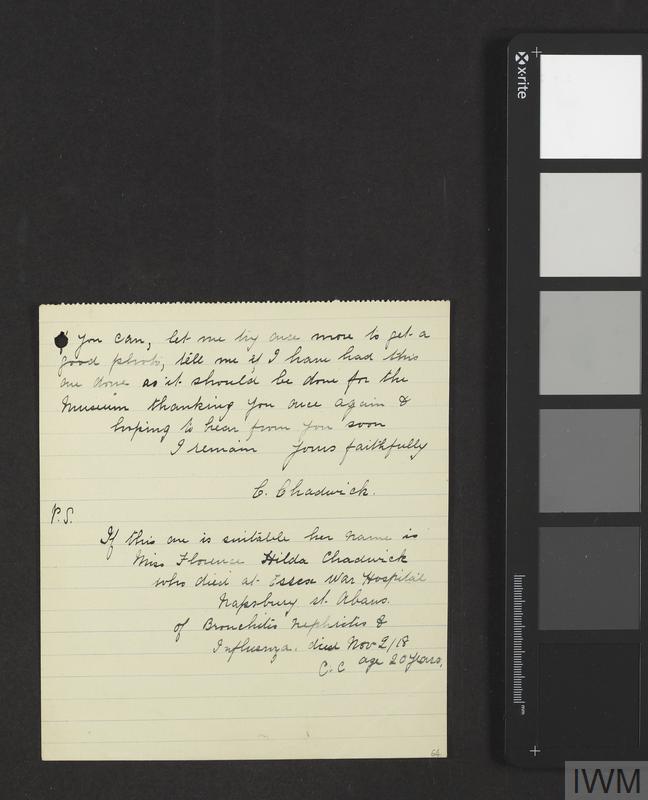 if you can, let me try once more to get a
good photo, tell me if I have had this
one done as it should be done for the
Museum thanking you once again &
hoping to hear from you soon
I remain yours faithfully
C. Chadwick.
P.S.
If this one is suitable her name is
Miss Florence Hilda Chadwick
who died at Essex War Hospital
Napsbury St. Abans.
of Bronchitis Nephritis &
Influenza. died Nov 2/18
C.C age 20 years,
64
x-rite
mm
IWM